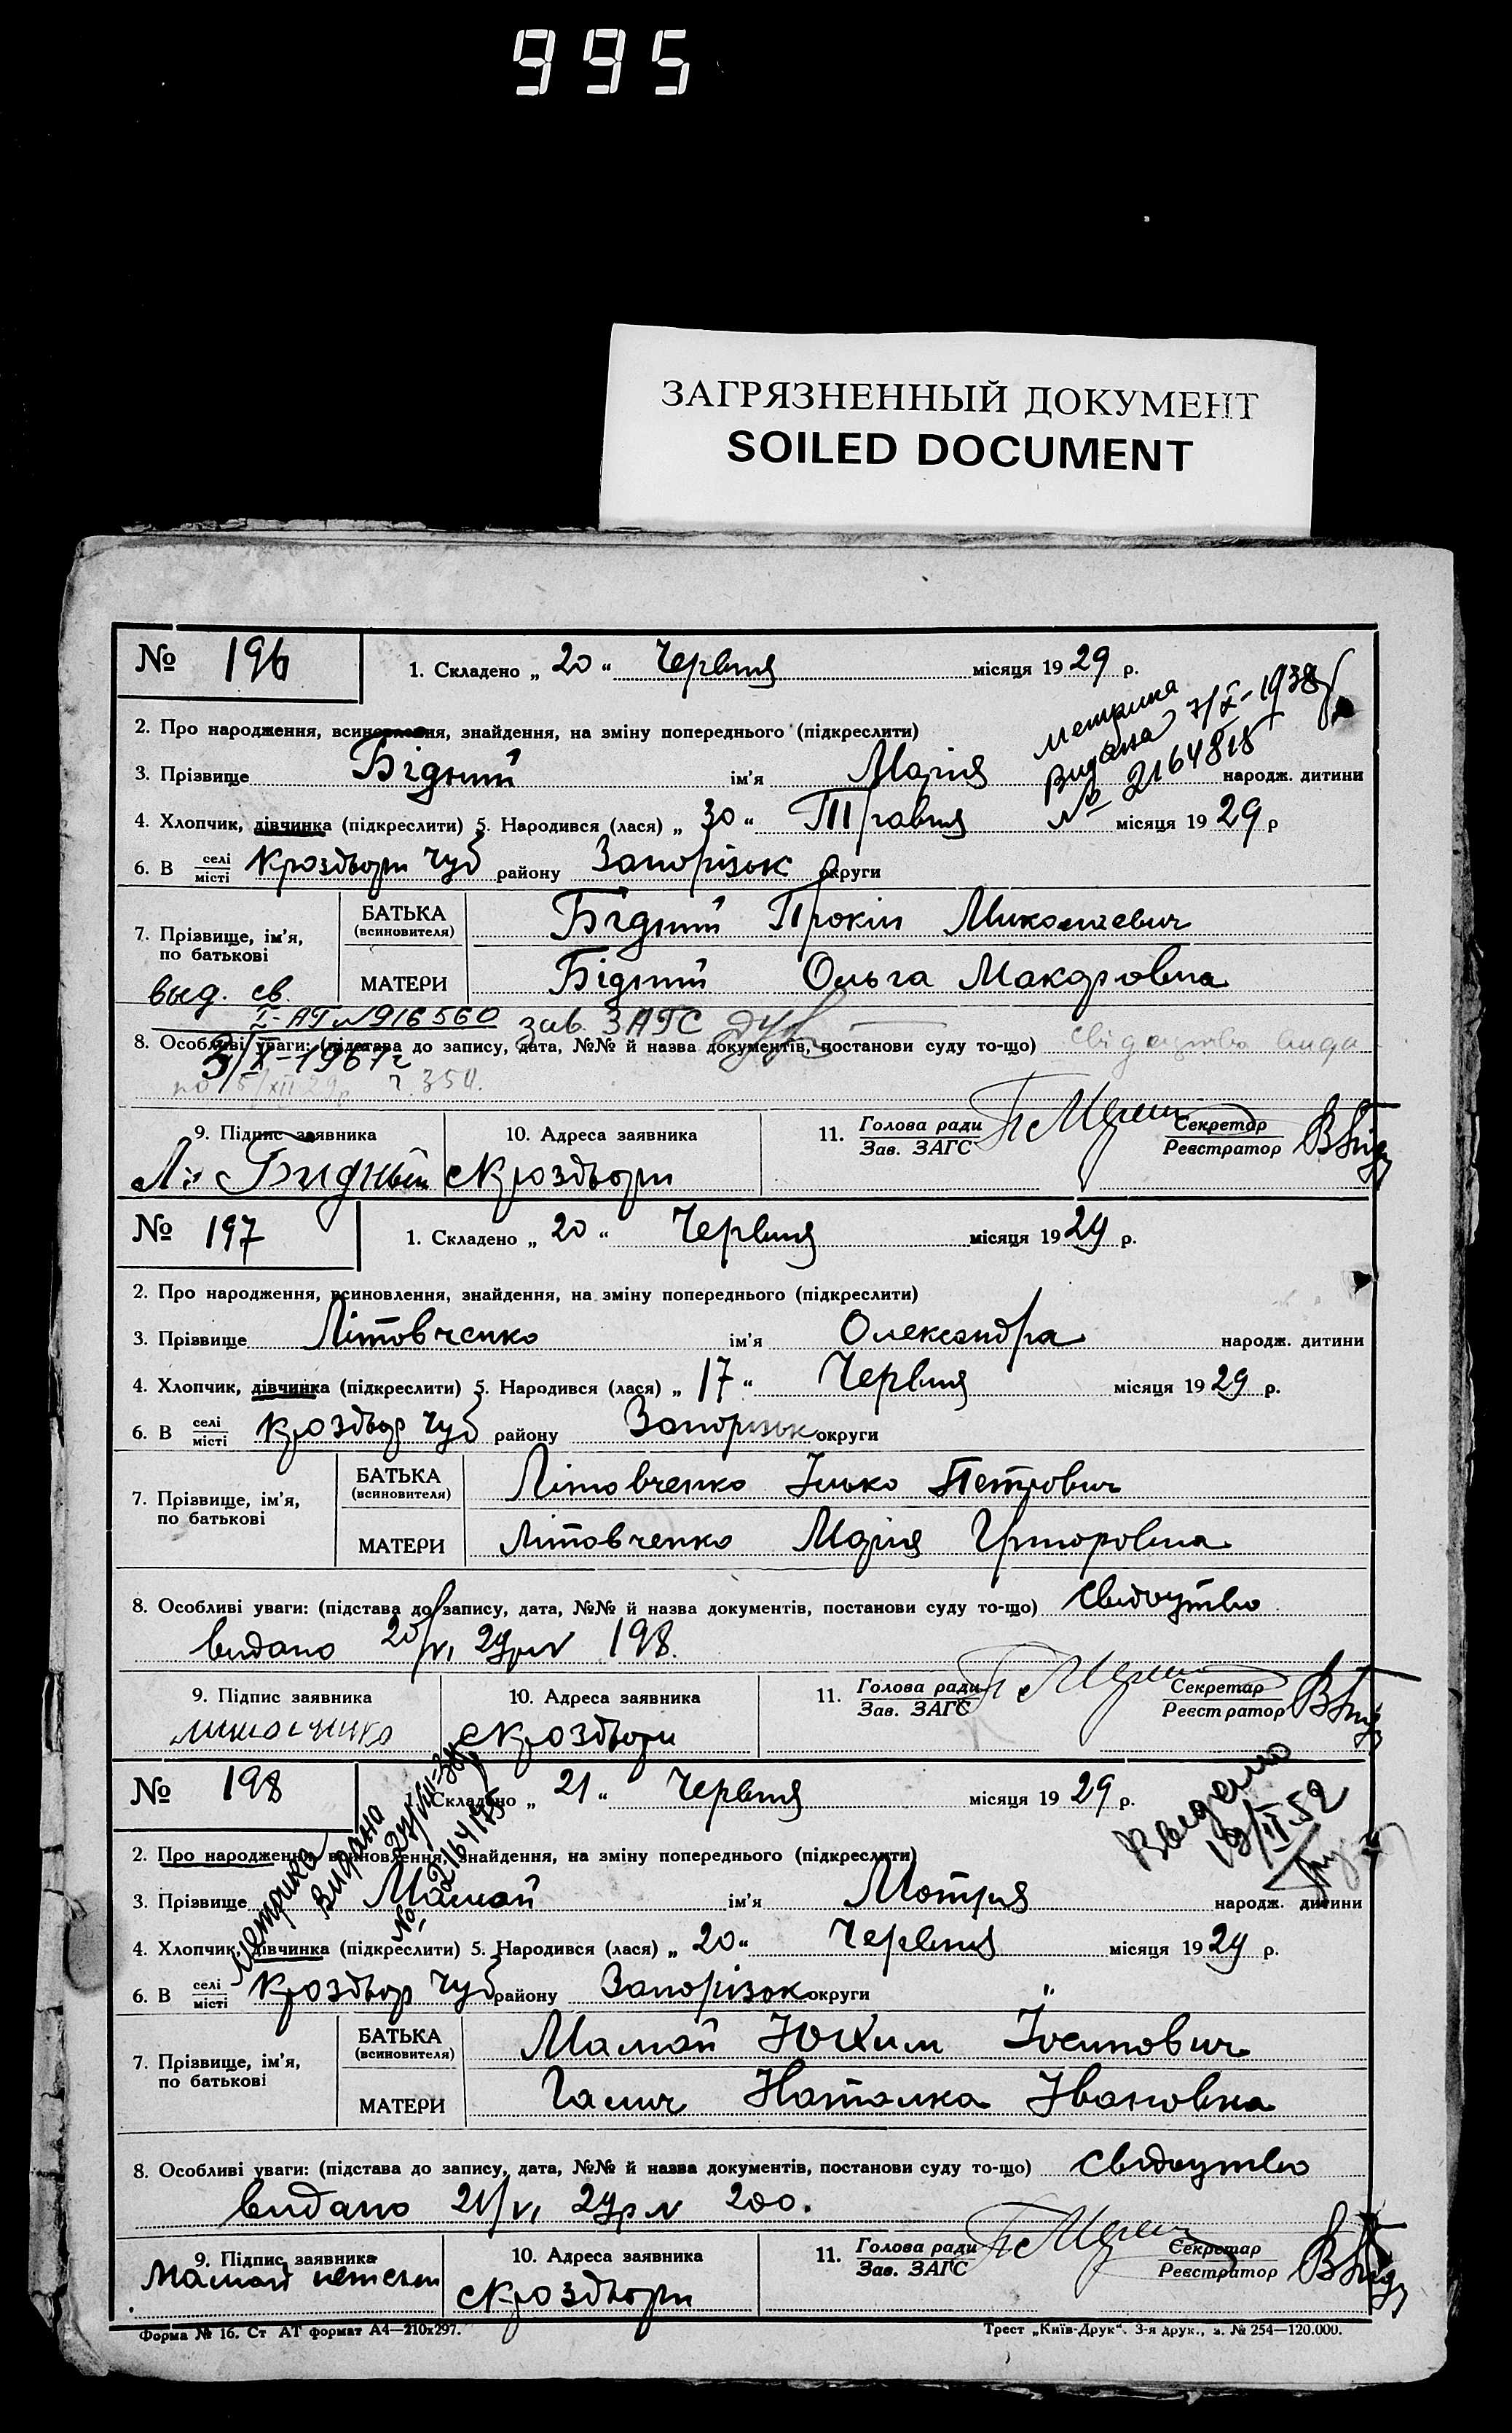 995
ЗАГРЯЗНЕННЫЙ ДОКУМЕНТ
SOILED DOCUMENT
№ 196 1. Складено „ 20 “ Червня місяця 19 29 р.
метрика
Видана 7/X-1938
№ 2164818
2. Про народження, всиновлення, знайдення, на зміну попереднього (підкреслити)
3. Прізвище Бідний ім'я Марія народж. дитини
4. Хлопчик, дівчинка (підкреслити) 5. Народився (лася) „ 30 “ Травня місяця 19 29 р
6. В селі місті Кроздвори Чуб району Запорізьк округи
7. Прізвище, ім'я, по батькові
БАТЬКА (всиновителя) Бідний Прокіп Миколаевич
МАТЕРИ Бідний Ольга Макаровна
выд. св.
I-АП №916560 зав. ЗАГС
8. Особливі уваги: (підстава до запису, дата, №№ й назва документів, постанови суду то-що) свідоцтво вида
3/X-1967г
но 5/XII 29р ч. 350.
9. Підпис заявника 10. Адреса заявника 11. Голова ради Зав. ЗАГС Секретар Реєстратор
Бидный с Кроздвори
№ 197 1. Складено „ 20 “ Червня місяця 19 29 р.
2. Про народження, всиновлення, знайдення, на зміну попереднього (підкреслити)
3. Прізвище Літовченко ім'я Олександра народж. дитини
4. Хлопчик, дівчинка (підкреслити) 5. Народився (лася) „ 17 “ Червня місяця 19 29 р.
6. В селі місті Кроздвор Чуб району Запорізьк округи
7. Прізвище, ім'я, по батькові
БАТЬКА (всиновителя) Літовченко Ілько Петрович
МАТЕРИ Літовченко Марія Григоровна
8. Особливі уваги: (підстава до запису, дата, №№ й назва документів, постанови суду то-що) свідоцтво
видано 20/VI 29р № 198.
9. Підпис заявника 10. Адреса заявника 11. Голова ради Зав. ЗАГС Секретар Реєстратор
с Кроздвори
№ 198 1. Складено „ 21 “ Червня місяця 19 29 р.
Метрика
Видана
№ 2164175
Выдано
18/II 52
2. Про народження, всиновлення, знайдення, на зміну попереднього (підкреслити)
3. Прізвище Мамай ім'я Мотря народж. дитини
4. Хлопчик, дівчинка (підкреслити) 5. Народився (лася) „ 20 “ Червня місяця 19 29 р.
6. В селі місті Кроздвор Чуб району Запорізьк округи
7. Прізвище, ім'я, по батькові
БАТЬКА (всиновителя) Мамай Юхим Іосипович
МАТЕРИ Галич Наталка Івановна
8. Особливі уваги: (підстава до запису, дата, №№ й назва документів, постанови суду то-що) свідоцтво
видано 21/VI 29р № 200.
9. Підпис заявника 10. Адреса заявника 11. Голова ради Зав. ЗАГС Секретар Реєстратор
Мамай с Кроздвори
Форма № 16. Ст АТ формат А4—210х297. Трест „Київ-Друк“. 3-я друк., з. № 254—120.000.